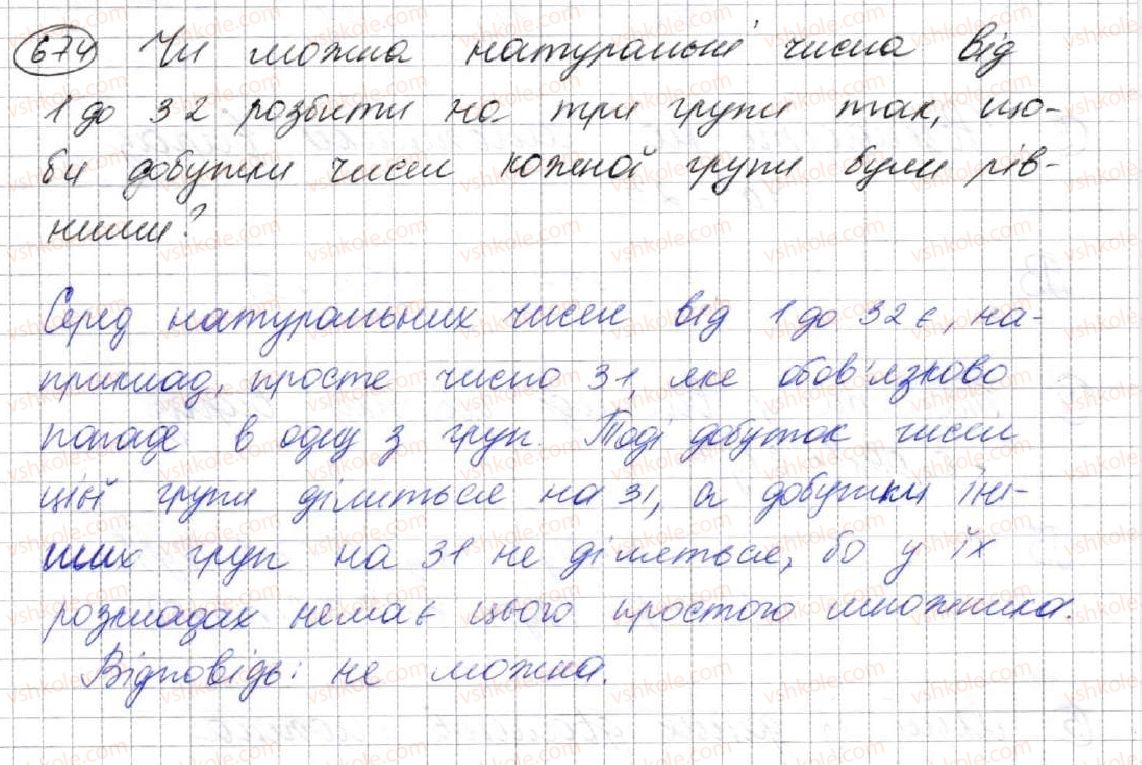 674 Чи можна натуральні числа від
1 до 32 розбити на три групи так, що-
би добутки чисел кожної групи були рів-
ними?
Серед натуральних чисел від 1 до 32 є, на-
приклад, просте число 31, яке обов'язково
попаде в одну з груп. Тоді добуток чисел
цієї групи ділиться на 31, а добутки ін-
ших груп на 31 не діляться, бо у їх
розкладах немає цього простого множника.
Відповідь: не можна.